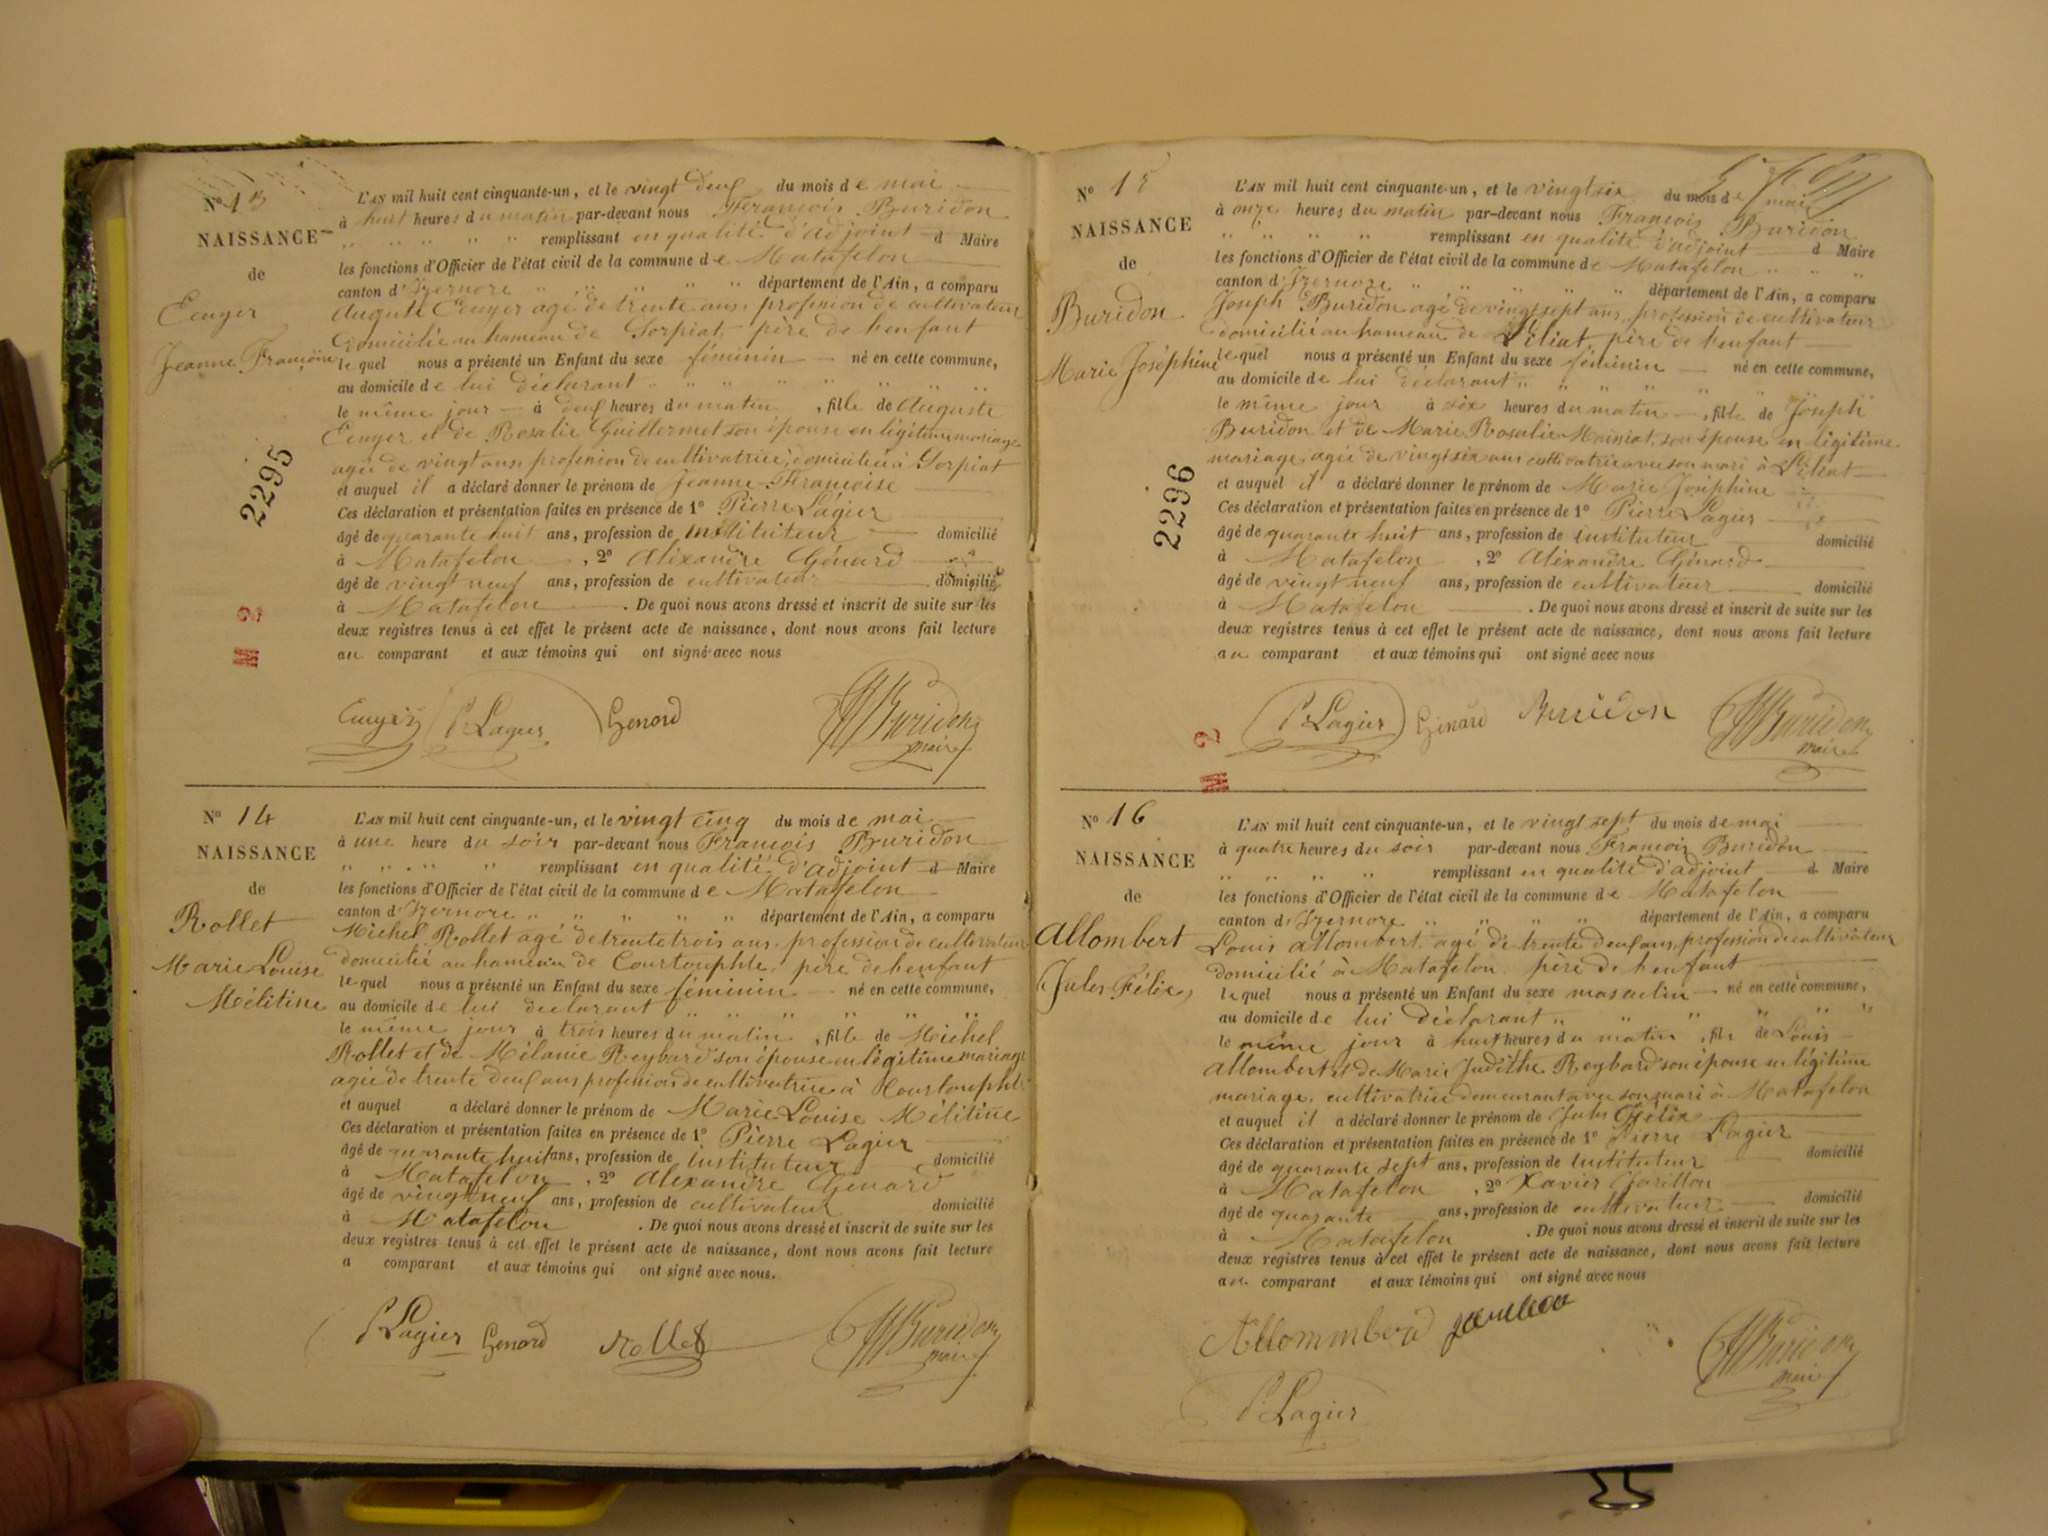 N° 13
NAISSANCE
de
Ecuyer
Jeanne Françoise
2295
M 2
L'AN mil huit cent cinquante-un, et le vingt deux du mois de mai
à huit heures du matin par-devant nous François Buridon
remplissant en qualité d'adjoint d Maire
les fonctions d'Officier de l'état civil de la commune de Matafelon
canton d'Izernore département de l'Ain, a comparu
Auguste Ecuyer agé de trente ans, profession de cultivateur
domicilié au hameau de Sorpiat, père de l'enfant
lequel nous a présenté un Enfant du sexe féminin né en cette commune,
au domicile de lui déclarant
le même jour à deux heures du matin, fille de Auguste
Ecuyer et de Rosalie Guillermet son épouse en légitime mariage
agée de vingt ans profession de cultivatrice, domiciliée à Sorpiat
et auquel il a déclaré donner le prénom de Jeanne Françoise
Ces déclaration et présentation faites en présence de 1° Pierre Lagier
âgé de quarante huit ans, profession de instituteur domicilié
à Matafelon, 2° Aléxandre Génard
âgé de vingt neuf ans, profession de cultivateur domicilié
à Matafelon. De quoi nous avons dressé et inscrit de suite sur les
deux registres tenus à cet effet le présent acte de naissance, dont nous avons fait lecture
au comparant et aux témoins qui ont signé avec nous
P. Lagier Genard Buridon
maire
N° 14
NAISSANCE
de
Rollet
Marie Louise
Mélitine
L'AN mil huit cent cinquante-un, et le vingt cinq du mois de mai
à une heure du soir par-devant nous François Buridon
remplissant en qualité d'adjoint d Maire
les fonctions d'Officier de l'état civil de la commune de Matafelon
canton d'Izernore département de l'Ain, a comparu
Michel Rollet agé de trente trois ans, profession de cultivateur
domicilié au hameau de Courtouphle, père de l'enfant
lequel nous a présenté un Enfant du sexe féminin né en cette commune,
au domicile de lui déclarant
le même jour à trois heures du matin, fille de Michel
Rollet et de Mélanie Reybard son épouse en légitime mariage
agée de trente deux ans profession de cultivatrice à Courtouphle
et auquel a déclaré donner le prénom de Marie Louise Mélitine
Ces déclaration et présentation faites en présence de 1° Pierre Lagier
âgé de quarante huit ans, profession de instituteur domicilié
à Matafelon, 2° Alexandre Génard
âgé de vingt neuf ans, profession de cultivateur domicilié
à Matafelon. De quoi nous avons dressé et inscrit de suite sur les
deux registres tenus à cet effet le présent acte de naissance, dont nous avons fait lecture
a comparant et aux témoins qui ont signé avec nous.
P. Lagier Genard Rollet Buridon
maire
N° 15
NAISSANCE
de
Buridon
Marie Joséphine
2296
M 2
L'AN mil huit cent cinquante-un, et le vingt six du mois de mai
à onze heures du matin par-devant nous François Buridon
remplissant en qualité d'adjoint d Maire
les fonctions d'Officier de l'état civil de la commune de Matafelon
canton d'Izernore département de l'Ain, a comparu
Joseph Buridon agé de vingt sept ans, profession de cultivateur
domicilié au hameau de père de l'enfant
lequel nous a présenté un Enfant du sexe féminin né en cette commune,
au domicile de lui déclarant
le même jour à six heures du matin, fille de Joseph
Buridon et de Marie Rosalie son épouse en légitime
mariage, agée de vingt six ans cultivatrice avec son mari à
et auquel il a déclaré donner le prénom de Marie Joséphine
Ces déclaration et présentation faites en présence de 1° Pierre Lagier
âgé de quarante huit ans, profession de instituteur domicilié
à Matafelon, 2° Aléxandre Génard
âgé de vingt neuf ans, profession de cultivateur domicilié
à Matafelon. De quoi nous avons dressé et inscrit de suite sur les
deux registres tenus à cet effet le présent acte de naissance, dont nous avons fait lecture
au comparant et aux témoins qui ont signé avec nous
P. Lagier Génard Buridon Buridon
maire
N° 16
NAISSANCE
de
Allombert
Jules Félix
L'AN mil huit cent cinquante-un, et le vingt sept du mois de mai
à quatre heures du soir par-devant nous François Buridon
remplissant en qualité d'adjoint d Maire
les fonctions d'Officier de l'état civil de la commune de Matafelon
canton d'Izernore département de l'Ain, a comparu
Louis Allombert, agé de trente deux ans, profession de cultivateur
domicilié à Matafelon, père de l'enfant
lequel nous a présenté un Enfant du sexe masculin né en cette commune,
au domicile de lui déclarant
le même jour à huit heures du matin, fils de Louis
Allombert et de Marie Judithe Reybard son épouse en légitime
mariage, cultivatrice demeurant avec son mari à Matafelon
et auquel il a déclaré donner le prénom de Jules Félix
Ces déclaration et présentation faites en présence de 1° Pierre Lagier
âgé de quarante sept ans, profession de instituteur domicilié
à Matafelon, 2° Xavier
âgé de quarante ans, profession de cultivateur domicilié
à Matafelon. De quoi nous avons dressé et inscrit de suite sur les
deux registres tenus à cet effet le présent acte de naissance, dont nous avons fait lecture
au comparant et aux témoins qui ont signé avec nous
Buridon
maire
P. Lagier